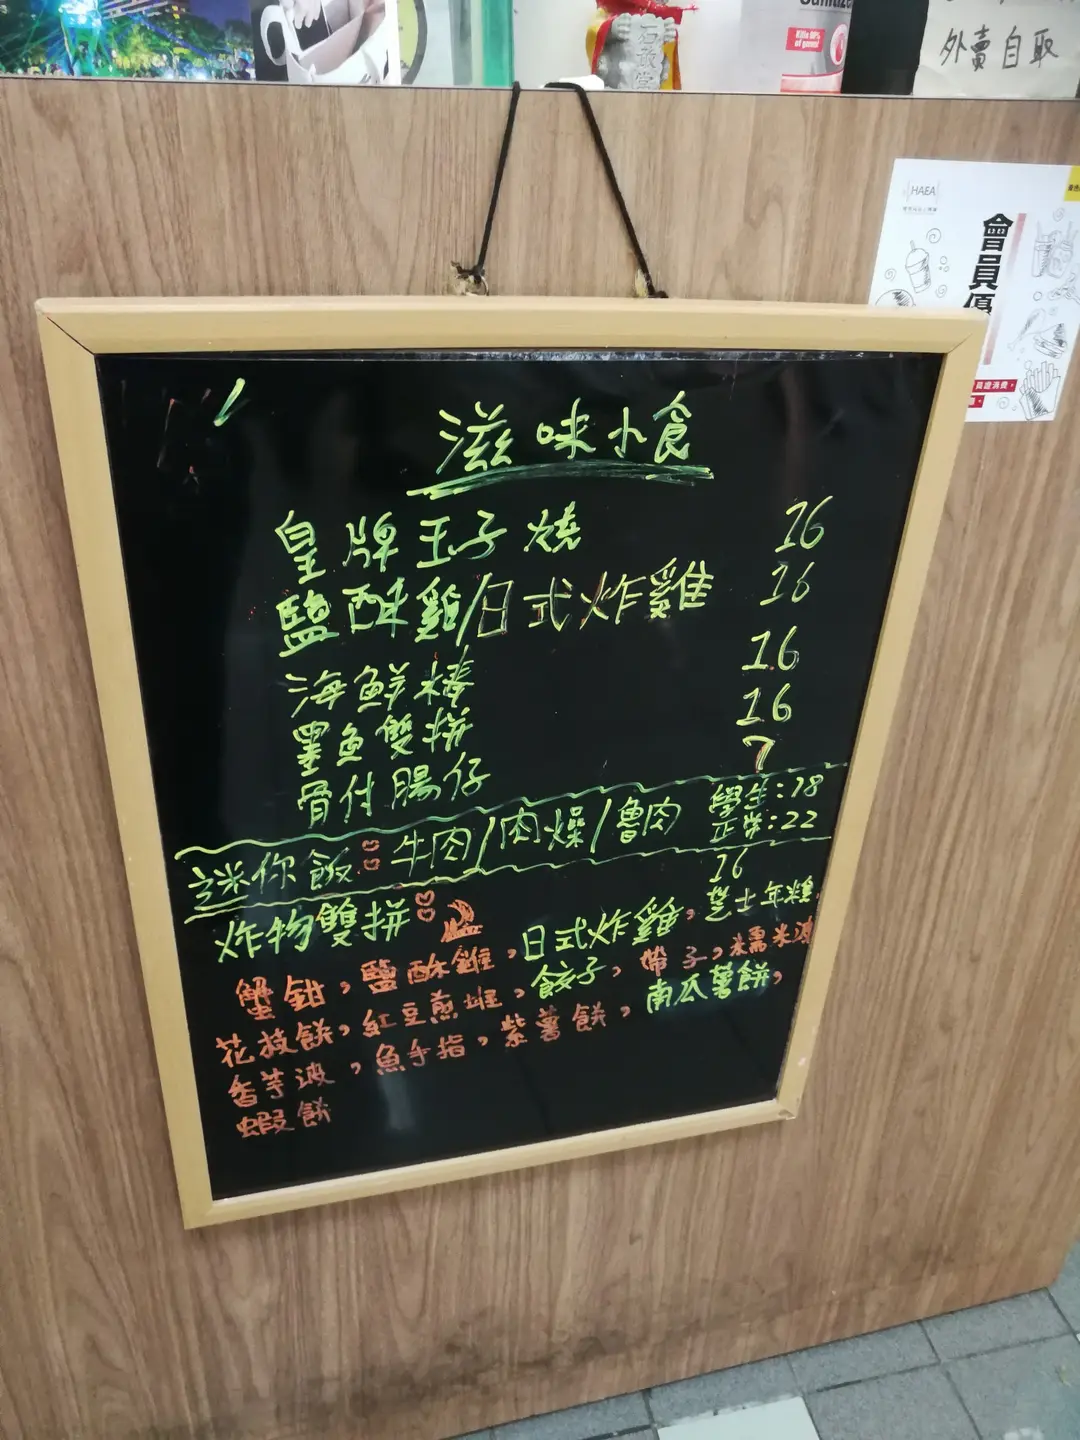 Sanitize
Kills 99%
of germs!
石敢當
外賣自取
HAEA
會員優
員證消費，
滋味小食
皇牌玉子燒 16
鹽酥雞/日式炸雞 16
海鮮棒 16
墨魚雙拼 16
骨付腸仔 7
迷你飯：牛肉/肉燥/魯肉 學生：18
正常：22
炸物雙拼： 16
蟹鉗，鹽酥雞，日式炸雞，芝士年糕，
花枝餅，紅豆煎堆，餃子，帶子，糯米波
香芋波，魚手指，紫薯餅，南瓜薯餅，
蝦餅